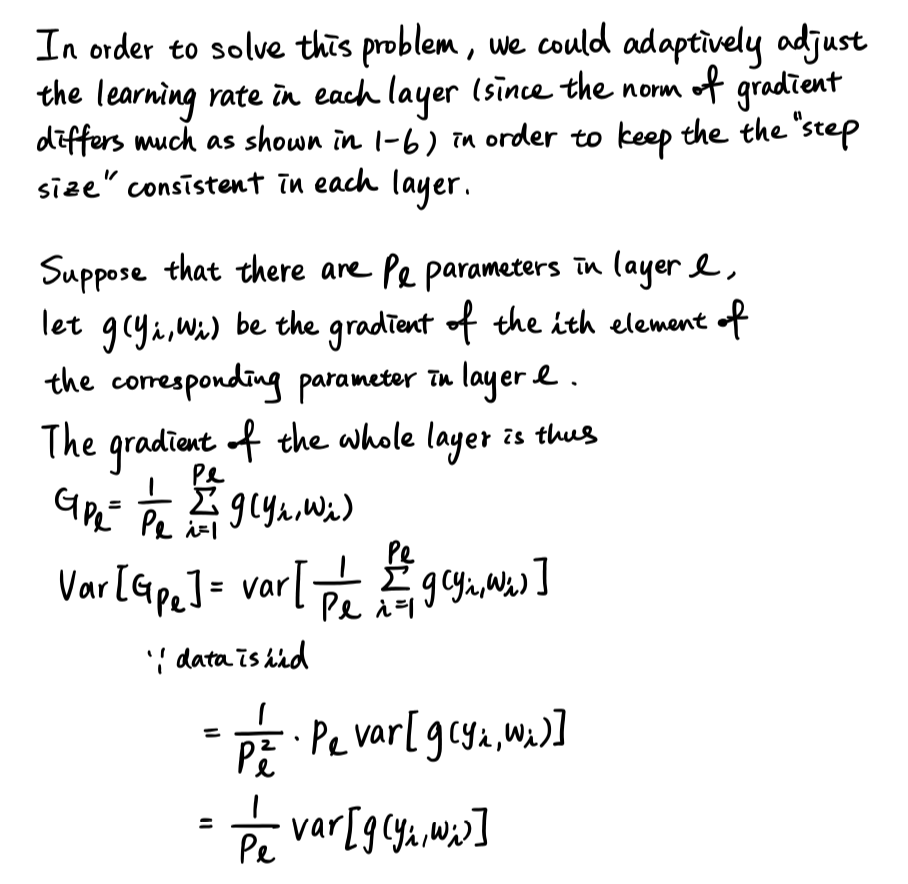 In order to solve this problem, we could adaptively adjust
the learning rate in each layer (since the norm of gradient
differs much as shown in 1-6) in order to keep the the "step
size" consistent in each layer.
Suppose that there are Pℓ parameters in layer ℓ,
let g(yᵢ,wᵢ) be the gradient of the ith element of
the corresponding parameter in layer ℓ.
The gradient of the whole layer is thus
G_{Pℓ} = \frac{1}{Pℓ} \sum_{i=1}^{Pℓ} g(yᵢ,wᵢ)
Var[G_{Pℓ}] = var[\frac{1}{Pℓ} \sum_{i=1}^{Pℓ} g(yᵢ,wᵢ)]
∵ data is iid
= \frac{1}{Pℓ^2} · Pℓ var[g(yᵢ,wᵢ)]
= \frac{1}{Pℓ} var[g(yᵢ,wᵢ)]